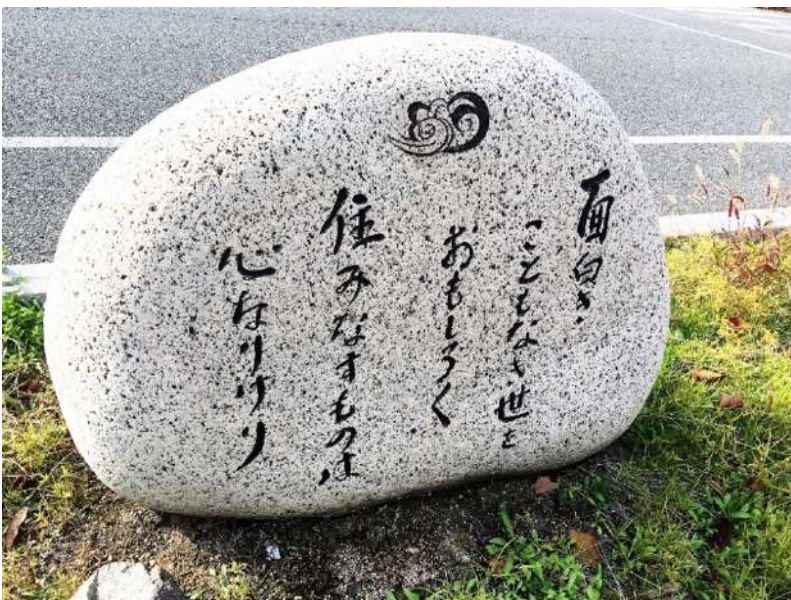 面白き
こともなき世を
おもしろく
住みなすものは
心なりけり